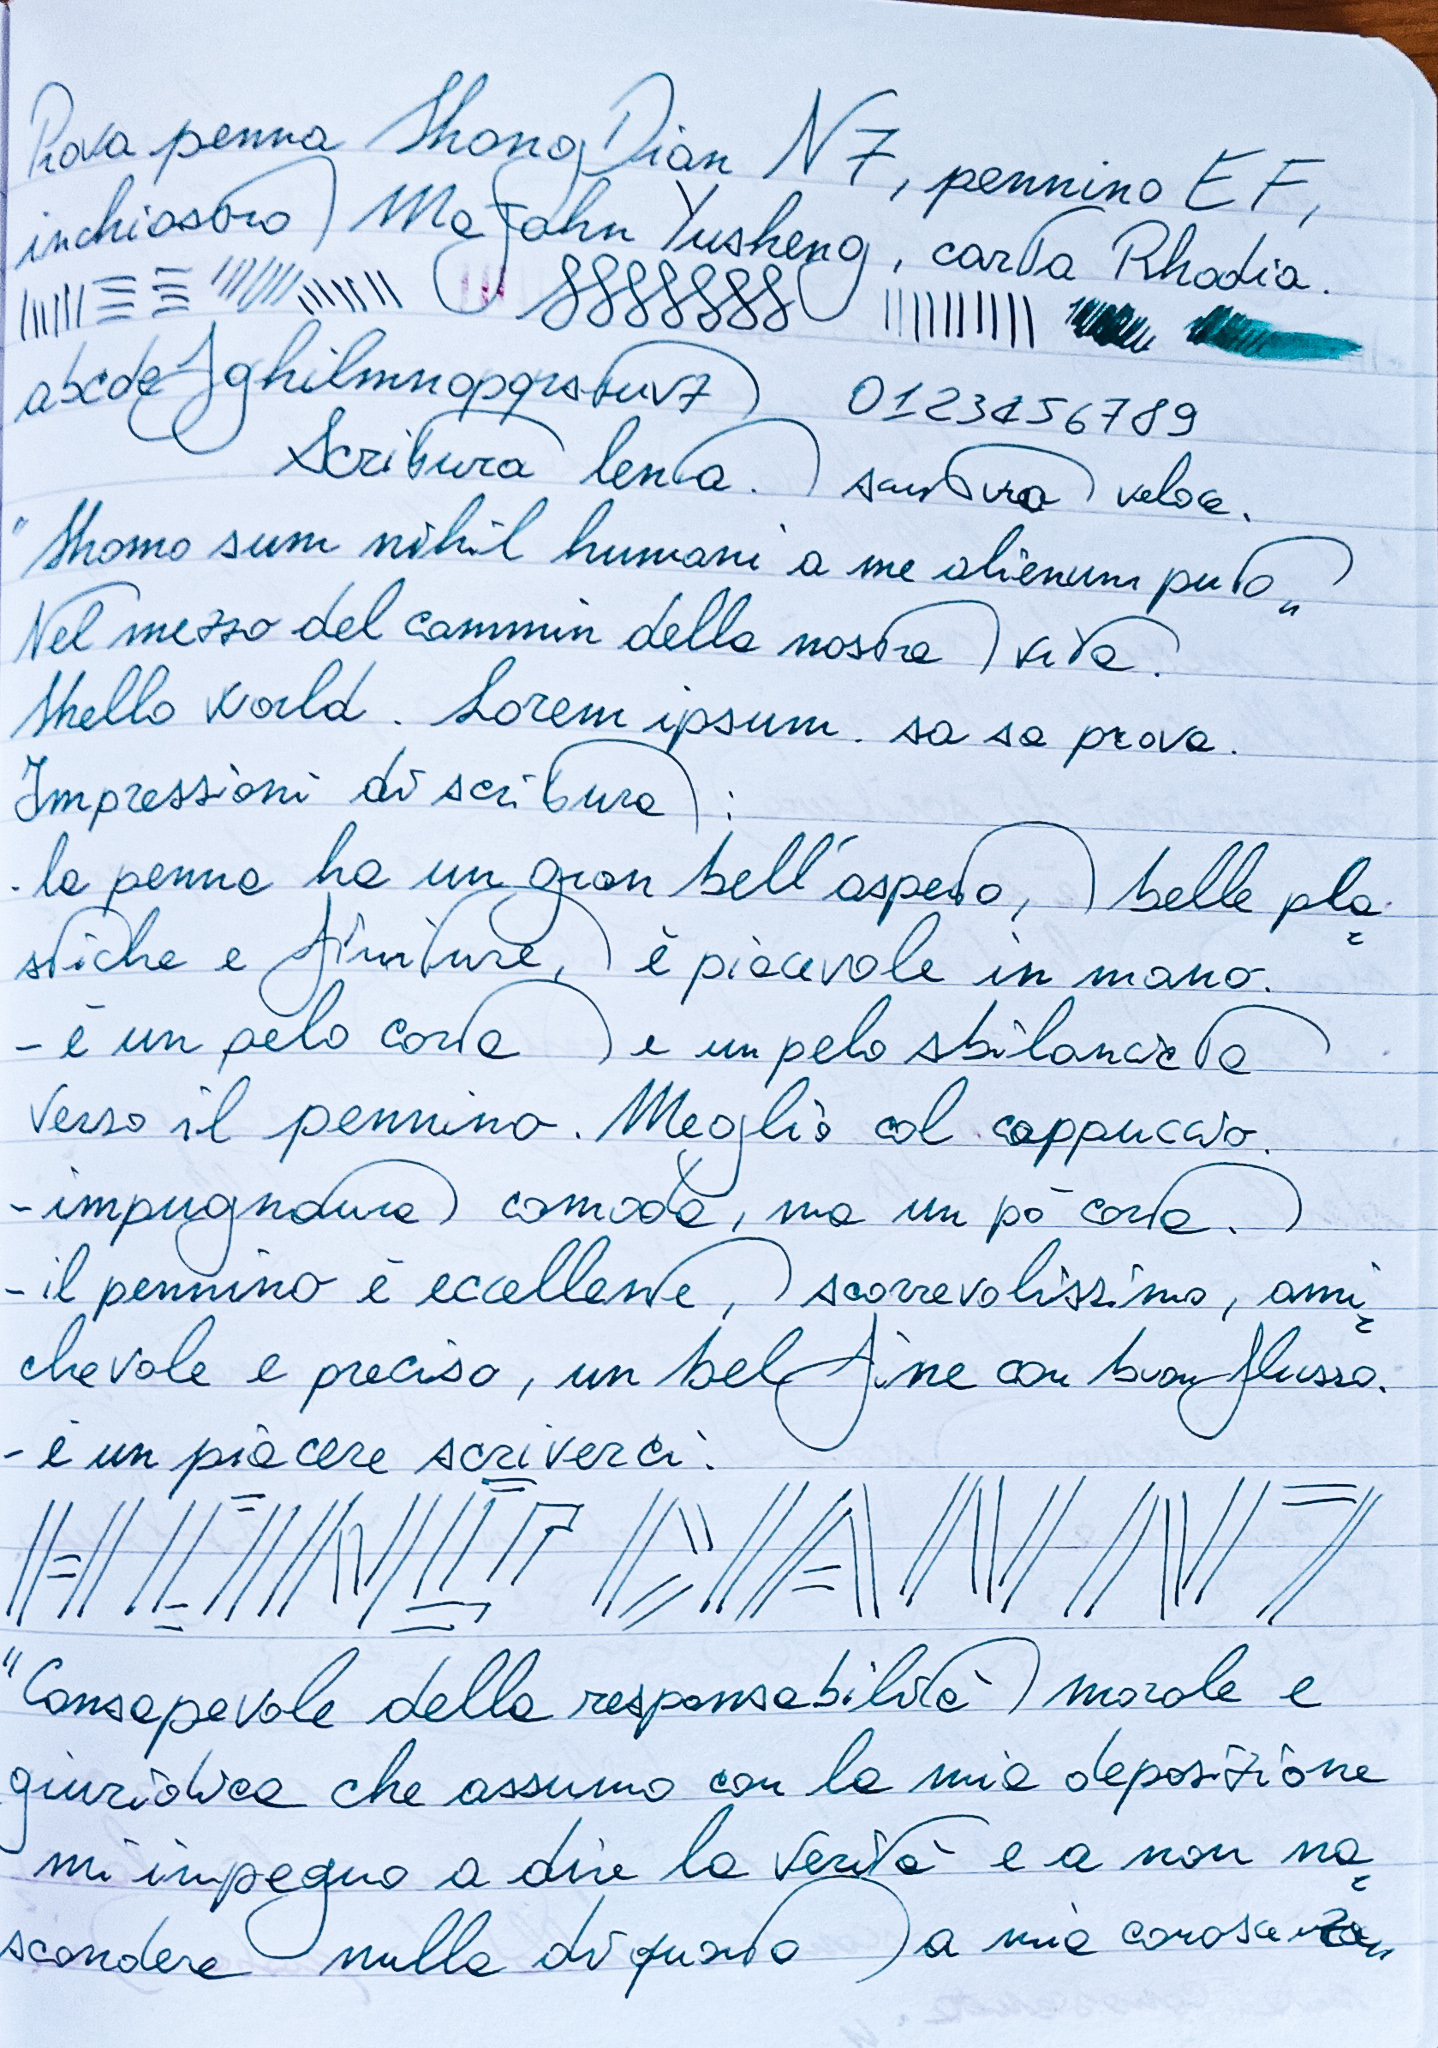 Prova penna HongDian N7, pennino EF,
inchiostro Majohn Yusheng, carta Rhodia.
abcdefghilmnopqrstuvz 0123456789
Scrittura lenta. scrittura veloce.
"Homo sum nihil humani a me alienum puto"
Nel mezzo del cammin della nostra vita.
Hello world. Lorem ipsum. sa sa prova.
Impressioni di scrittura:
- la penna ha un gran bell'aspetto, belle pla
stiche e finiture, è piacevole in mano.
- è un pelo corta e un pelo sbilanciata
verso il pennino. Meglio col cappuccio.
- impugnatura comoda, ma un pò corta.
- il pennino è eccellente, scorrevolissimo, ami
chevole e preciso, un bel fine con buon flusso.
- è un piacere scriverci.
"Consapevole della responsabilità morale e
giuridica che assumo con la mia deposizione
mi impegno a dire la verità e a non na
scondere nulla di quanto a mia conoscenza"